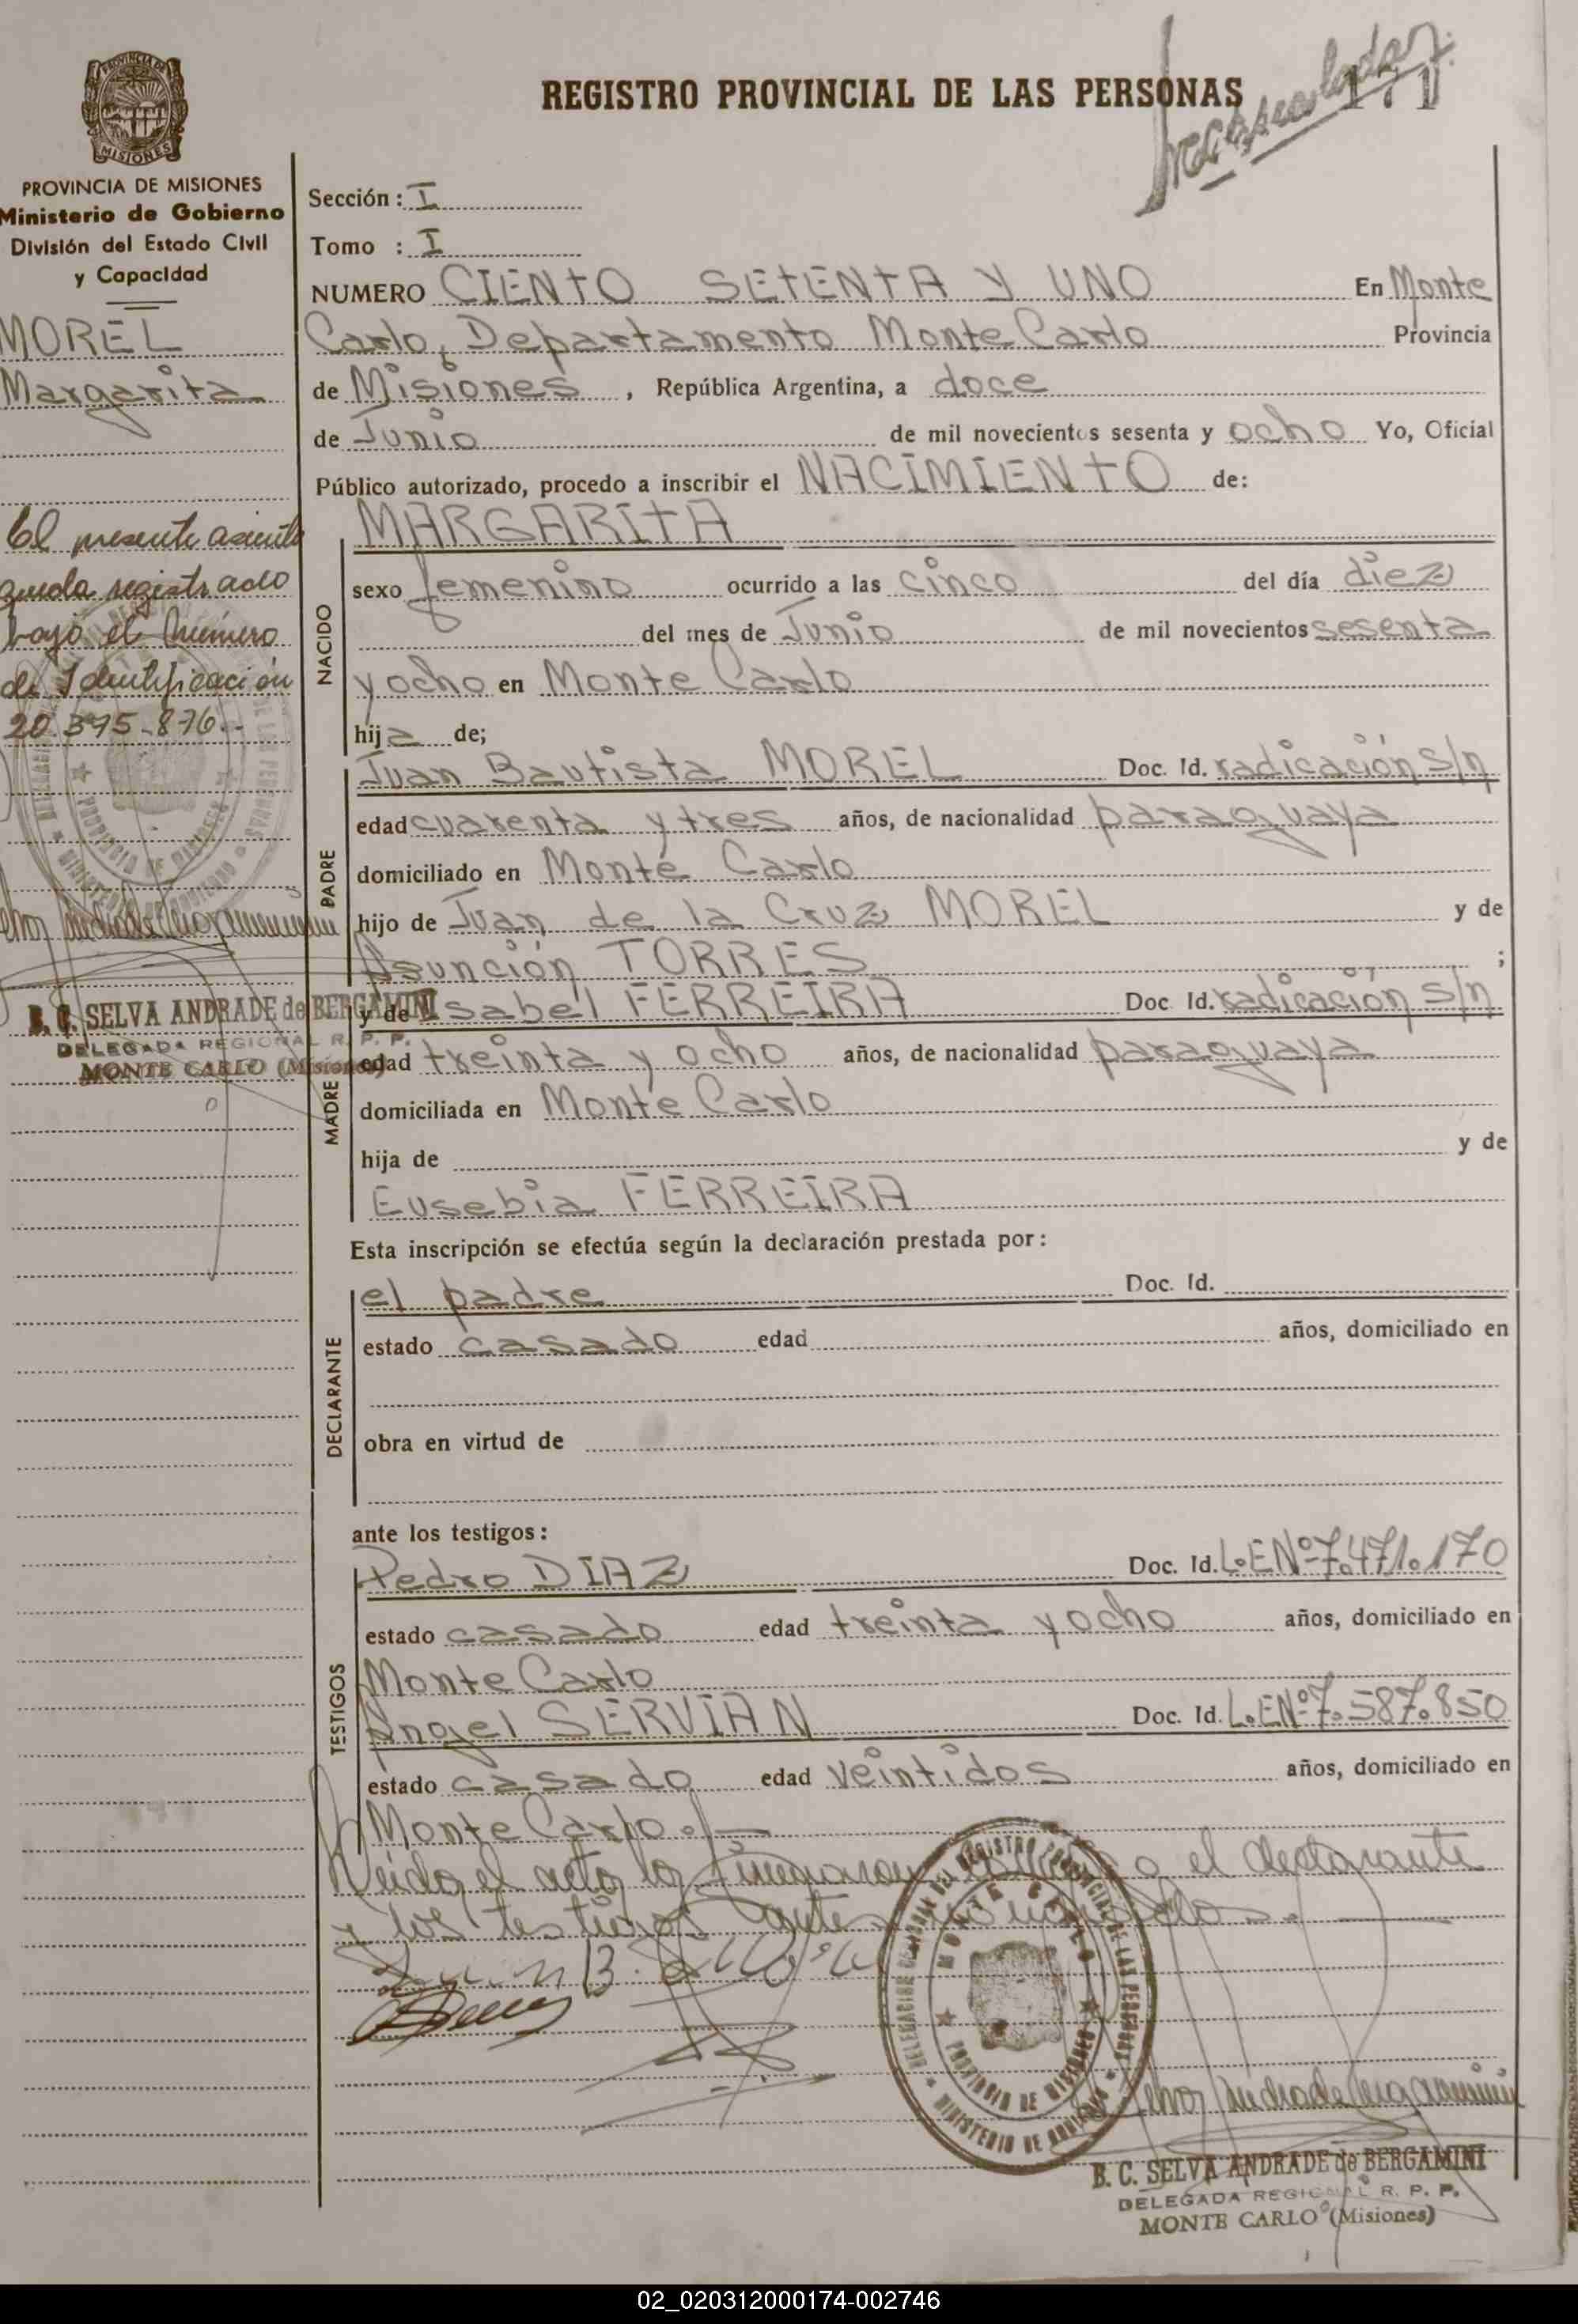 REGISTRO PROVINCIAL DE LAS PERSONAS
171
PROVINCIA DE MISIONES
Ministerio de Gobierno
División del Estado Civil
y Capacidad
MOREL
Margarita
El presente asiento
queda registrado
bajo el Número
de Identificación
20.395.876.-
B. C. SELVA ANDRADE de BERGAMINI
DELEGADA REGIONAL R. P. P.
MONTE CARLO (Misiones)
Sección: I
Tomo : I
NUMERO CIENTO SETENTA Y UNO En Monte
Carlo, Departamento Monte Carlo Provincia
de Misiones, República Argentina, a doce
de Junio de mil novecientos sesenta y ocho Yo, Oficial
Público autorizado, procedo a inscribir el NACIMIENTO de:
NACIDO
MARGARITA
sexo femenino ocurrido a las cinco del día diez
del mes de Junio de mil novecientos sesenta
y ocho en Monte Carlo
hija de;
PADRE
Juan Bautista MOREL Doc. Id. radicación s/n
edad cuarenta y tres años, de nacionalidad paraguaya
domiciliado en Monte Carlo
hijo de Juan de la Cruz MOREL y de
Asunción TORRES ;
MADRE
y de Isabel FERREIRA Doc. Id. radicación s/n
edad treinta y ocho años, de nacionalidad paraguaya
domiciliada en Monte Carlo
hija de y de
Eusebia FERREIRA
Esta inscripción se efectúa según la declaración prestada por:
DECLARANTE
el padre Doc. Id.
estado casado edad años, domiciliado en
obra en virtud de
ante los testigos:
TESTIGOS
Pedro DIAZ Doc. Id. L.E.Nº7.471.170
estado casado edad treinta y ocho años, domiciliado en
Monte Carlo
Angel SERVIAN Doc. Id. L.E.Nº7.587.850
estado casado edad veintidos años, domiciliado en
Monte Carlo./-
Leída el acta, la firmaron el declarante
y los testigos antes
REGISTRO PROVINCIAL DE LAS PERSONAS
MONTE CARLO
PROVINCIA DE MISIONES
B. C. SELVA ANDRADE de BERGAMINI
DELEGADA REGIONAL R. P. P.
MONTE CARLO (Misiones)
02_020312000174-002746